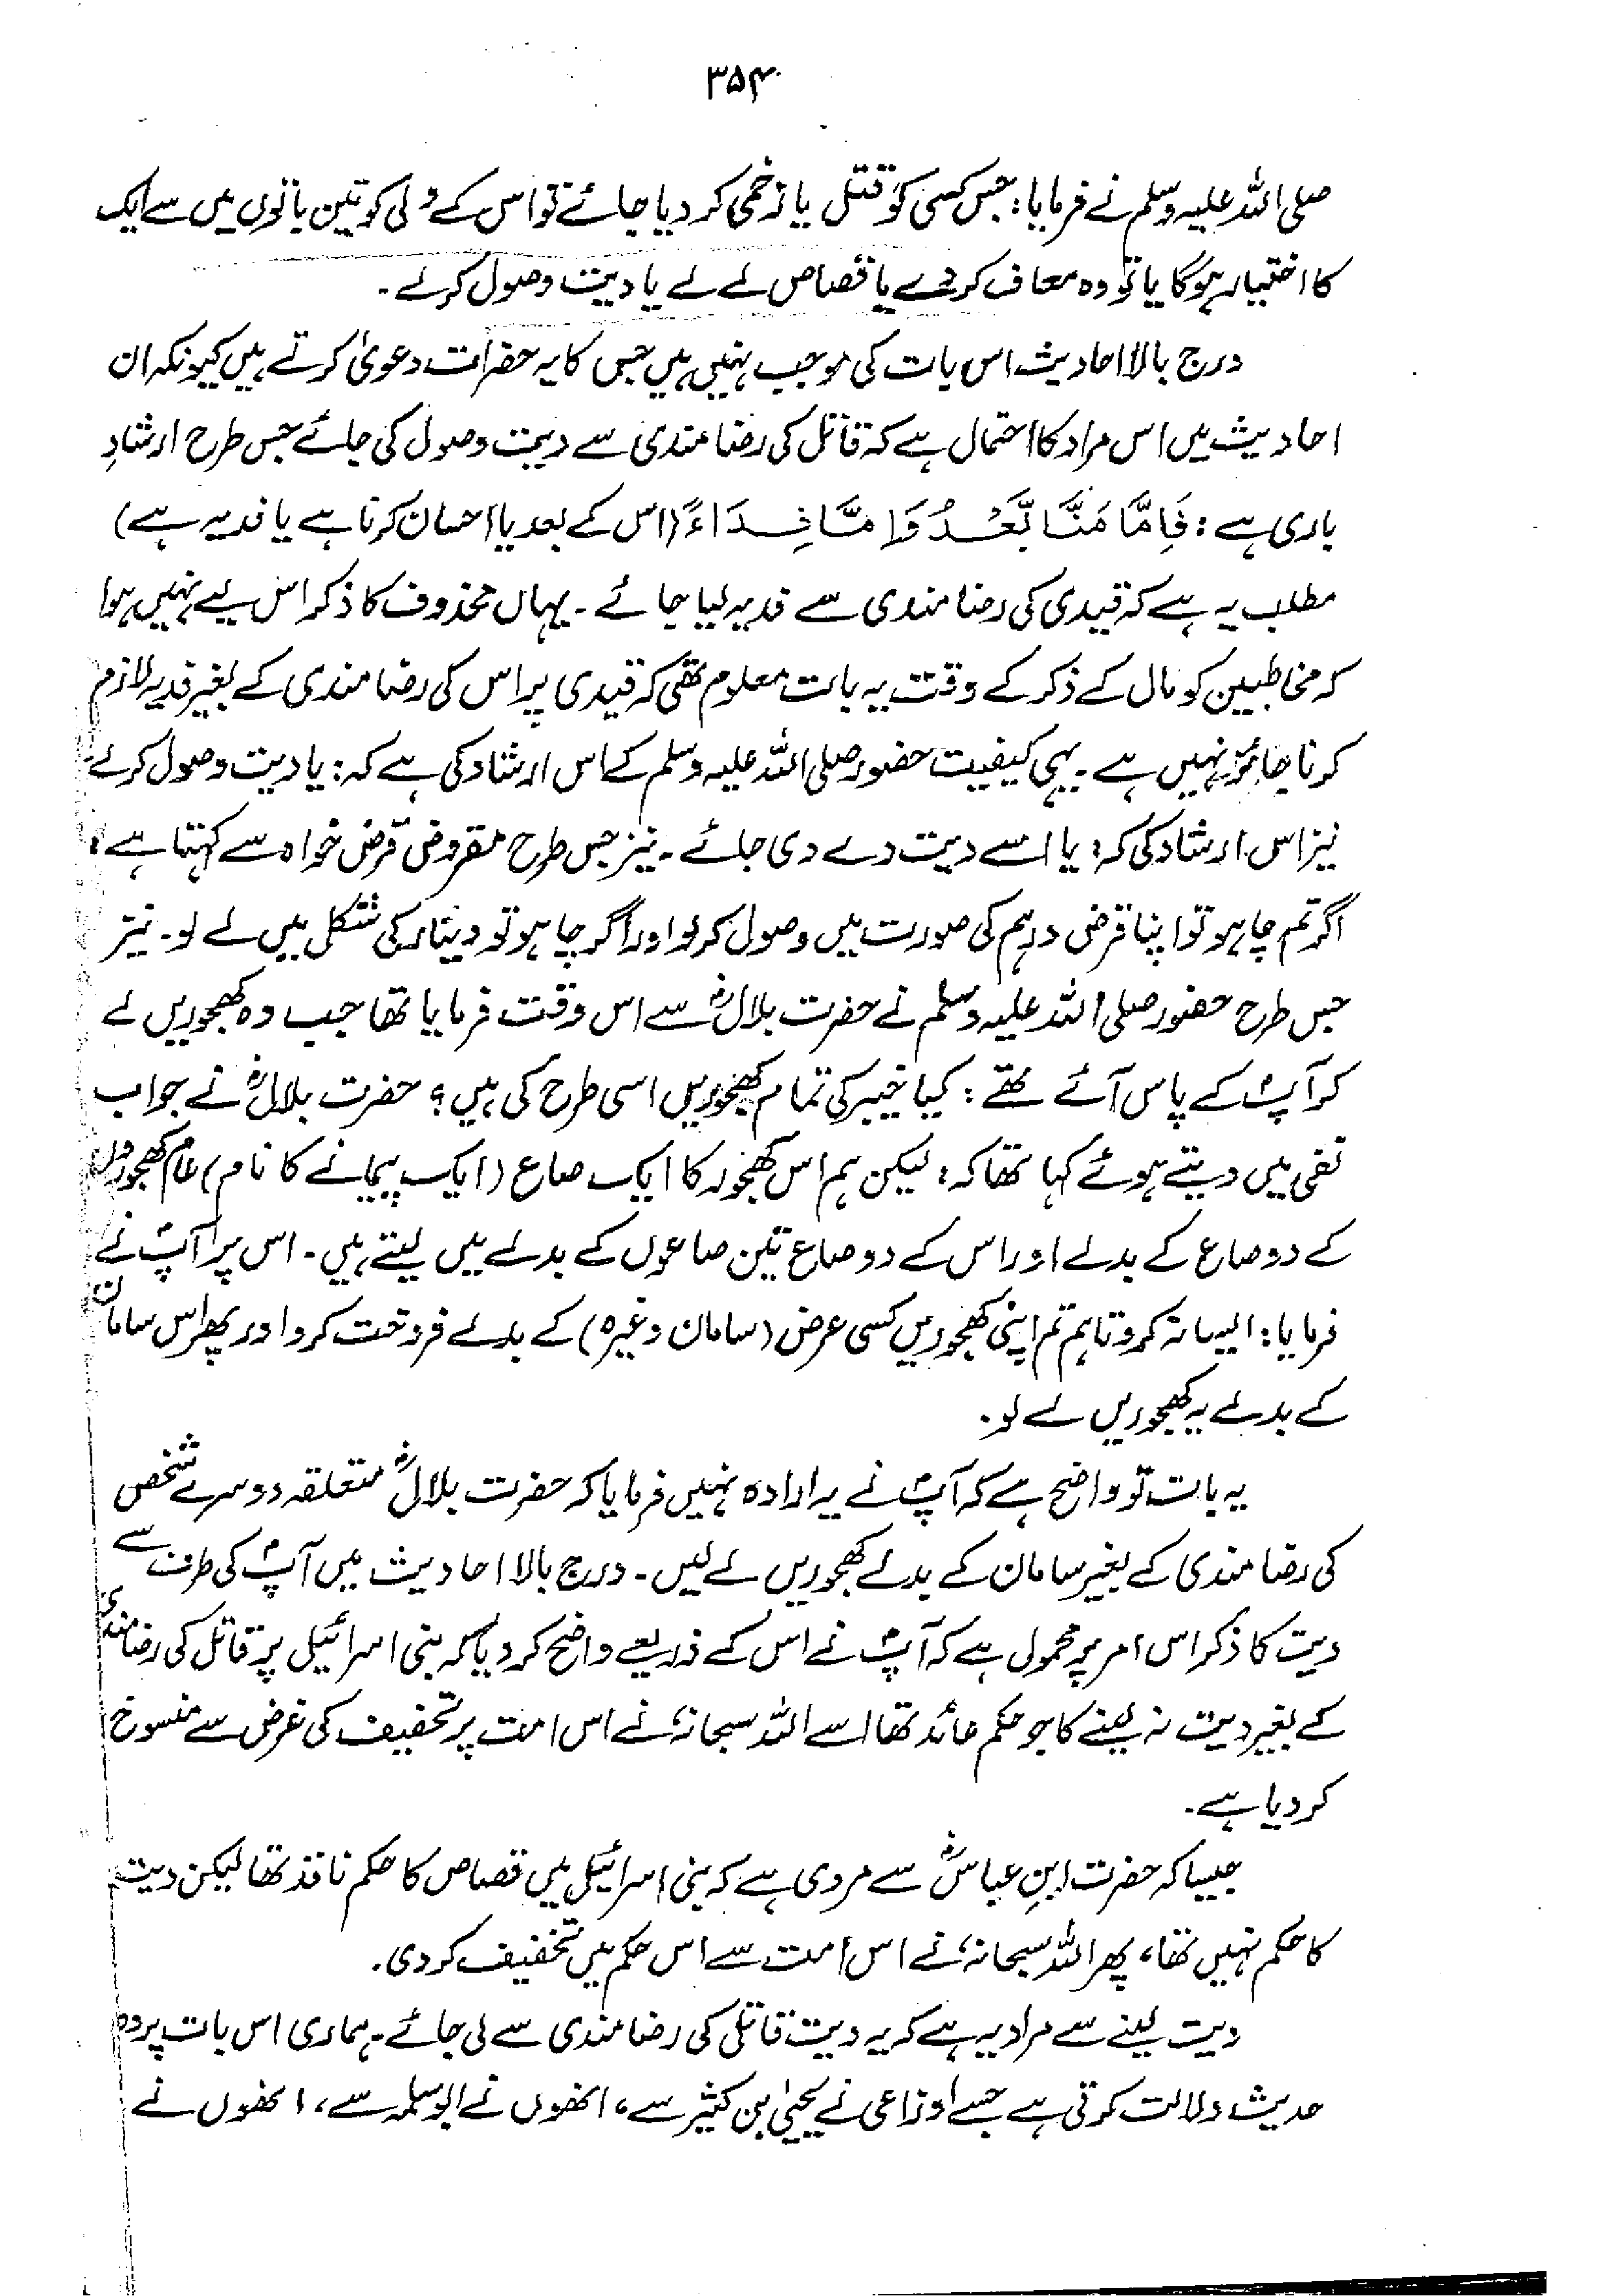 ۳۵۴
صلی اللہ علیہ وسلم نے فرمایا: جس کسی کو قتل یا زخمی کر دیا جائے تو اس کے ولی کو تین باتوں میں سے ایک
کا اختیار ہوگا یا تو وہ معاف کر دے یا قصاص لے لے یا دیت وصول کر لے۔
درج بالا احادیث اس بات کی موجب نہیں ہیں جس کا یہ حضرات دعویٰ کرتے ہیں کیونکہ ان
احادیث میں اس مراد کا احتمال ہے کہ قاتل کی رضامندی سے دیت وصول کی جائے جس طرح ارشادِ
باری ہے: فَاِمَّا مَنًّا بَّعْدُ وَاِمَّا فِدَاءً (اس کے بعد یا احسان کرنا ہے یا فدیہ ہے)
مطلب یہ ہے کہ قیدی کی رضامندی سے فدیہ لیا جائے۔ یہاں محذوف کا ذکر اس لیے نہیں ہوا
کہ مخاطبین کو مال کے ذکر کے وقت یہ بات معلوم تھی کہ قیدی پر اس کی رضامندی کے بغیر فدیہ لازم
کرنا جائز نہیں ہے۔ یہی کیفیت حضور صلی اللہ علیہ وسلم کے اس ارشاد کی ہے کہ: یا دیت وصول کرلے
نیز اس ارشاد کی کہ: یا اسے دیت دے دی جائے۔ نیز جس طرح مقروض قرض خواہ سے کہتا ہے:
اگر تم چاہو تو اپنا قرض درہم کی صورت میں وصول کر لو اور اگر چاہو تو دینار کی شکل میں لے لو۔ نیز
جس طرح حضور صلی اللہ علیہ وسلم نے حضرت بلالؓ سے اس وقت فرمایا تھا جب وہ کھجوریں لے
کر آپؐ کے پاس آئے تھے: کیا خیبر کی تمام کھجوریں اسی طرح کی ہیں؟ حضرت بلالؓ نے جواب
نفی میں دیتے ہوئے کہا تھا کہ: لیکن ہم اس کھجور کا ایک صاع (ایک پیمانے کا نام) عام کھجوروں
کے دو صاع کے بدلے اور اس کے دو صاع تین صاعوں کے بدلے میں لیتے ہیں۔ اس پر آپؐ نے
فرمایا: ایسا نہ کرو تاہم تم اپنی کھجوریں کسی عرض (سامان وغیرہ) کے بدلے فروخت کرو اور پھر اس سامان
کے بدلے یہ کھجوریں لے لو۔
یہ بات تو واضح ہے کہ آپؐ نے یہ ارادہ نہیں فرمایا کہ حضرت بلالؓ متعلقہ دوسرے شخص
کی رضامندی کے بغیر سامان کے بدلے کھجوریں لے لیں۔ درج بالا احادیث میں آپؐ کی طرف سے
دیت کا ذکر اس امر پر محمول ہے کہ آپؐ نے اس کے ذریعے واضح کر دیا کہ بنی اسرائیل پر قاتل کی رضامندی
کے بغیر دیت نہ لینے کا جو حکم عائد تھا اسے اللہ سبحانہٗ نے اس امت پر تخفیف کی غرض سے منسوخ
کر دیا ہے۔
جیسا کہ حضرت ابنِ عباسؓ سے مروی ہے کہ بنی اسرائیل میں قصاص کا حکم نافذ تھا لیکن دیت
کا حکم نہیں تھا، پھر اللہ سبحانہٗ نے اس امت سے اس حکم میں تخفیف کر دی۔
دیت لینے سے مراد یہ ہے کہ یہ دیت قاتل کی رضامندی سے لی جائے۔ ہماری اس بات پر وہ
حدیث دلالت کرتی ہے جسے اوزاعی نے یحییٰ بن کثیر سے، انھوں نے ابو سلمہ سے، انھوں نے